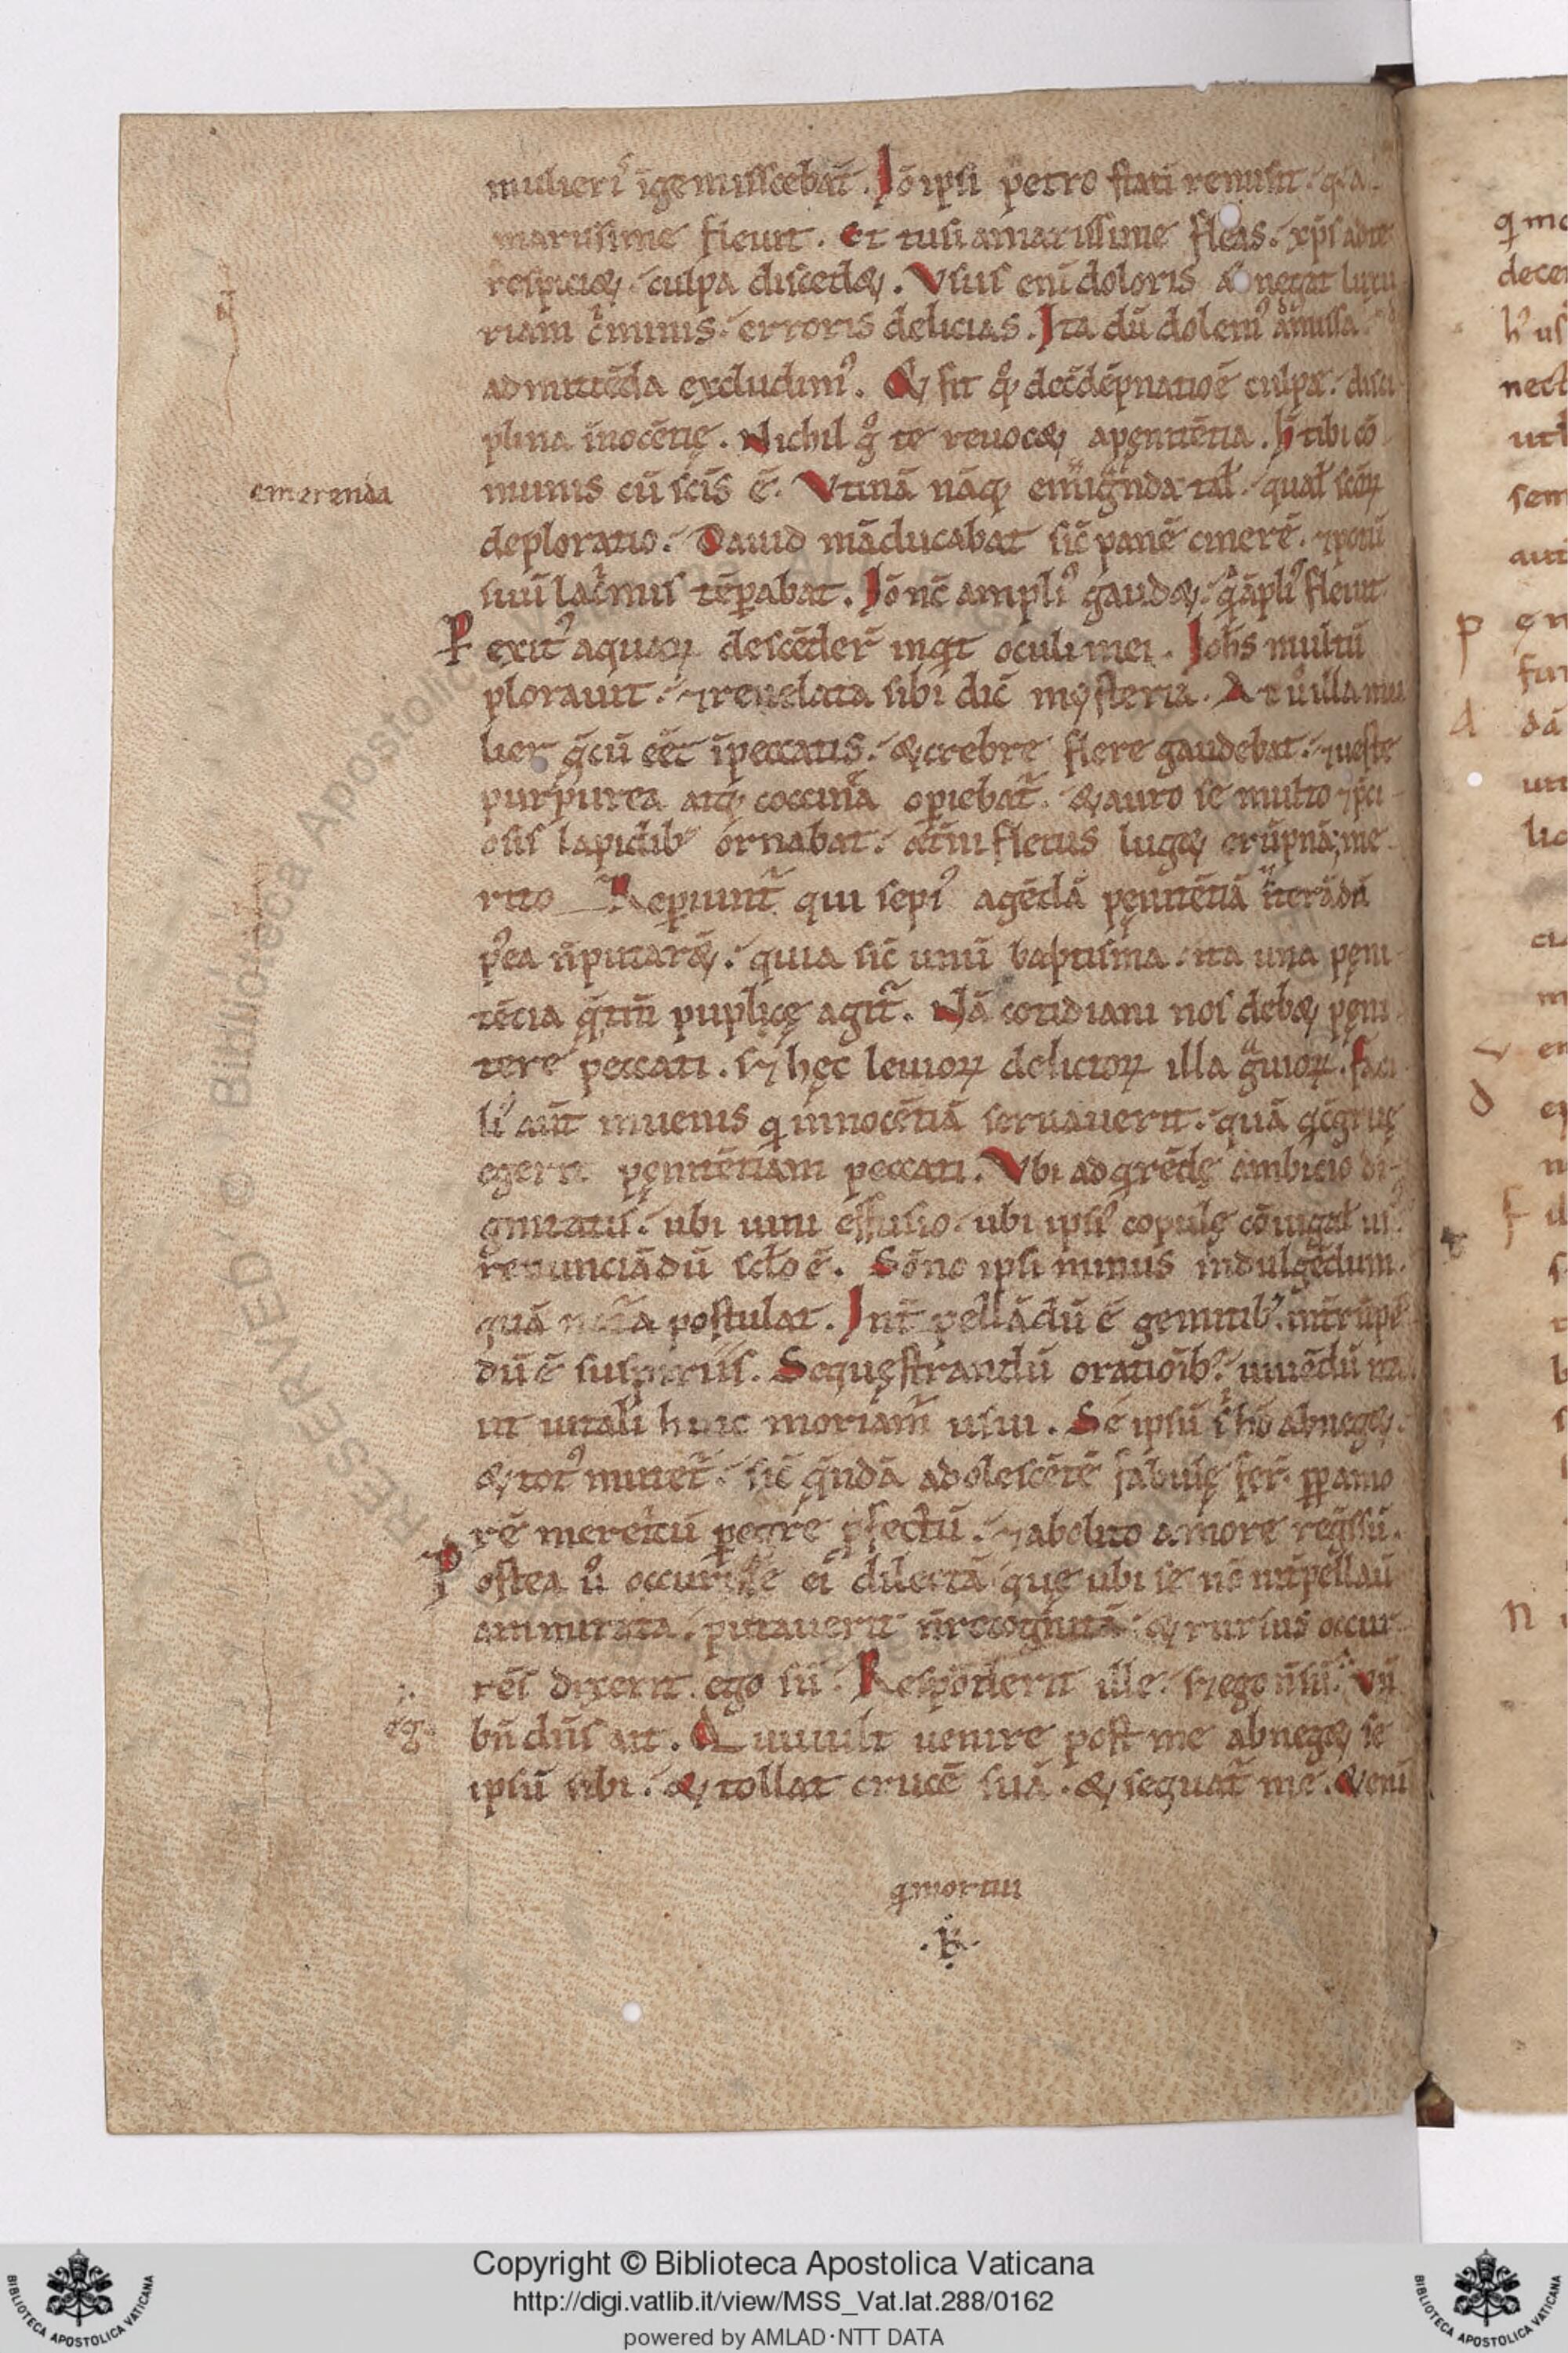 mulieri᷒ ıgemissceba᷑t. Iō ipsi petro stati renusit. q̄ a-
marissime fleuit. et tu si amarissime fleas. xp̄s ad te
respiciet, culpa discedet. Vsus eni doloris negat luxu
riam c̄minis. erroris delicias. Ita dū dolem᷒ āmissa.
admittēda excludim᷒. Et fit q̄ de cōdēpnatiōe culpę. disci-
plina inocētię. Nichil g̊ te reuocet a pęnitētia. h̄ tibi cō
munis cū sc̄is ē. Vtinā nāq; emiḡnda tal̄. qual̄ sc̄oꝝ
emerenda
deploratio. Dauid māducabat sic̄ panē cinerē. ⁊ potū
suū lac̄mis tēꝑabat. Iō nc̄ ampli᷒ gaudet. q̄ āpli᷒ fleuit.
Exit᷒ aquaꝝ descēder̄ inq̄t oculi mei. Ioh̄s multū
plorauit. ⁊ reuelata sibi dic̄ mysteria. At ů illa mu
lier q̄ cū eēt ī peccatis. & crebre flere gaudebat. ⁊ ueste
purpurea atq; coccina opieba᷑t. & auro se multo ⁊ p̄ci-
osis lapidib᷒ ornabat. ać̄m fletus luget erūpnā; me-
rito Reꝑiun᷑t qui sepi᷒ agēdā pęnitētiā iterādā
p᷒ea n̄ putaret. quia sic̄ unū baptisma. ita una pęni-
tēcia q̄ tm̄ puplicę agi᷑t. Nā cotidiani nos debet pęni-
tere peccati. s; hęc leuioꝝ delictoꝝ illa g̃uioꝝ. faci
li᷒ aūt inuenis q̄ innocētiā seruauerit. quā q̄ cōgruę
egerit pęnitētiam peccati. Vbi adq̄rēdę ambicio di-
gnitatis. ubi uini effusio. ubi ipsi᷒ copulę cōiugal̄ ui᷒
renunciādū scl̄o ē. Sōno ipsi minus indulgēdum.
quā nat̄a postulat. Int̄pellādū ē gemitib᷒. int̄rūpē
dū ē suspiriis. Sequęstrandū oratioīb᷒. uiuēdū ita
ut uitali huic moriam̄ usui. Se ipsū s̄ hō abneget.
& tot᷒ mute᷑t. sic̄ q̄ndā adolescētē fabulę fer̄. ꝓpt amo
rē meret̄cū ꝑegre ꝓfectū. ⁊ abolito amore reg̃ssū.
Postea ů occurrisse ei dilectā que ubi se nō int̄pellau
ammirata. putauerit n̄ recognitā. & rursus occur
rēs dixerit. ego sū. Responderit ille. s; ego n̄ sū. Vn̄
eg.
bn̄ dn̄s ait. Qui uult uenire post me abneget se
ipsū sibi. & tollat crucē suā. & sequa᷑t me. & eni
q̄ mortui
.k.
Copyright © Biblioteca Apostolica Vaticana
http://digi.vatlib.it/view/MSS_Vat.lat.288/0162
powered by AMLAD·NTT DATA
BIBLIOTECA APOSTOLICA VATICANA
BIBLIOTECA APOSTOLICA VATICANA